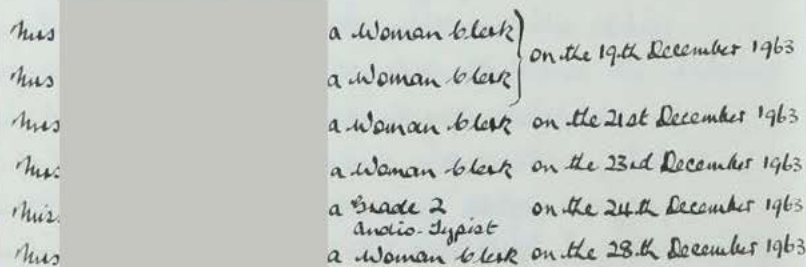 Mrs a Woman Clerk } on the 19th December 1963
Mrs a Woman Clerk
Mrs a Woman Clerk on the 21st December 1963
Mrs a Woman Clerk on the 23rd December 1963
Mrs. a Grade 2 on the 24th December 1963
Audio-Typist
Mrs a Woman Clerk on the 28th December 1963